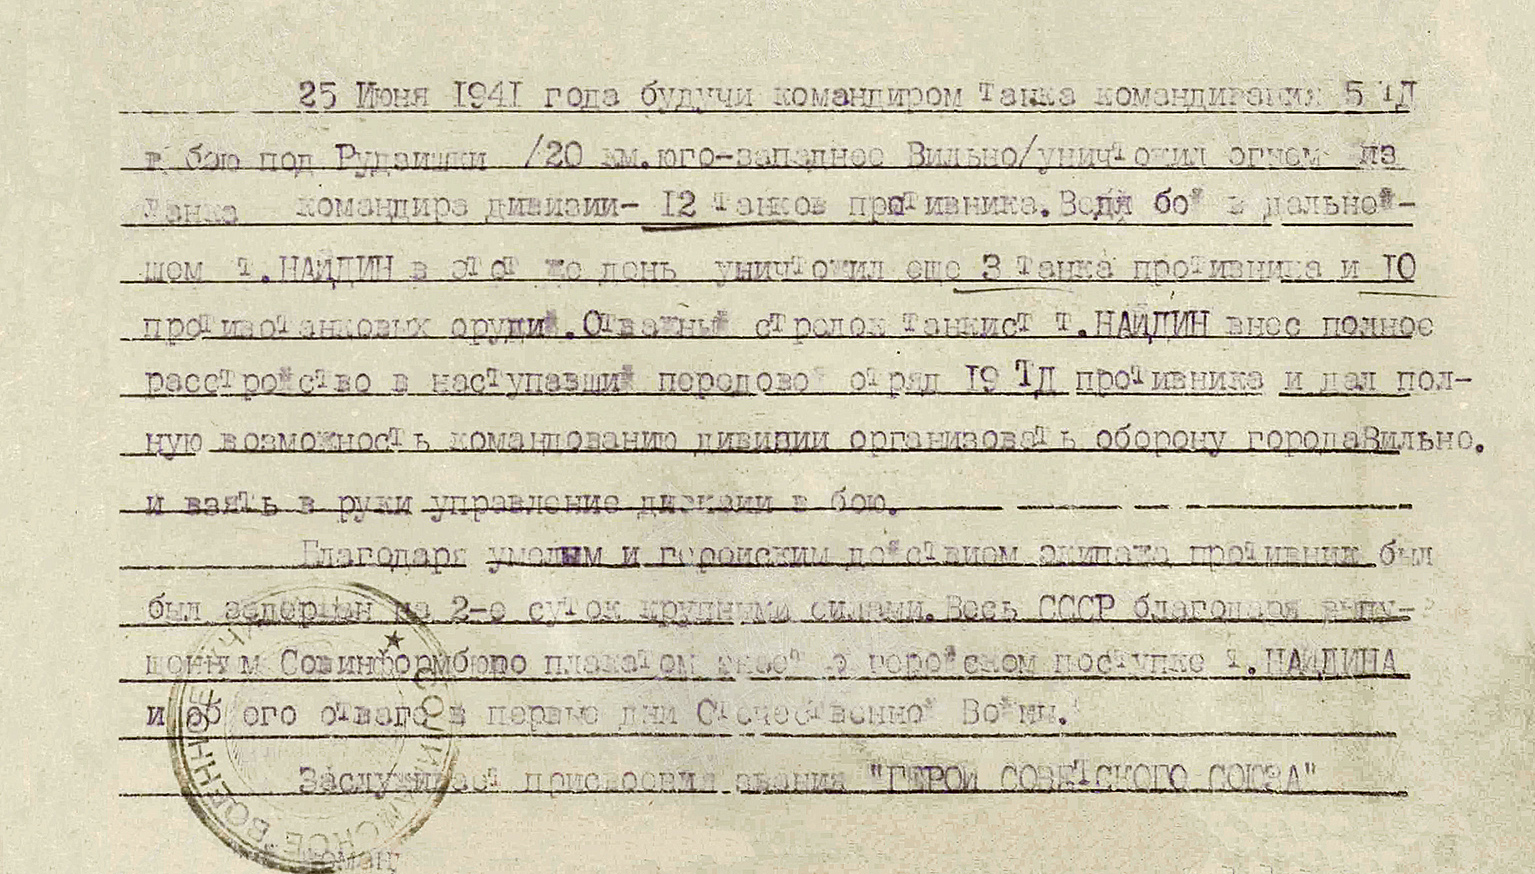 25 Июня 1941 года будучи командиром танка командования 5 ТД
в бою под Рудзишки /20 км.юго-западнее Вильно/уничтожил огнем из
танка командира дивизии- 12 танков противника.Ведя бой в дальней-
шем т.НАЙДИН в этот же день уничтожил еще 3 танка противника и 10
противотанковых орудий.Отважный стрелок танкист т.НАЙДИН внес полное
расстройство в наступавший передовой отряд 19 ТД противника и дал пол-
ную возможность командованию дивизии организовать оборону городаВильно.
и взять в руки управление дивизии в бою.
Благодаря умелым и геройским действием экипажа противник был
был задержан на 2-е суток крупными силами.Весь СССР благодаря выпу-
щенным Совинформбюро плакатом знает о геройском поступке т.НАЙДИНА
и об его отваге в первые дни Отечественной Войны.
Заслуживает присвоения звания "ГЕРОЙ СОВЕТСКОГО СОЮЗА"
ВОЕННОЕ